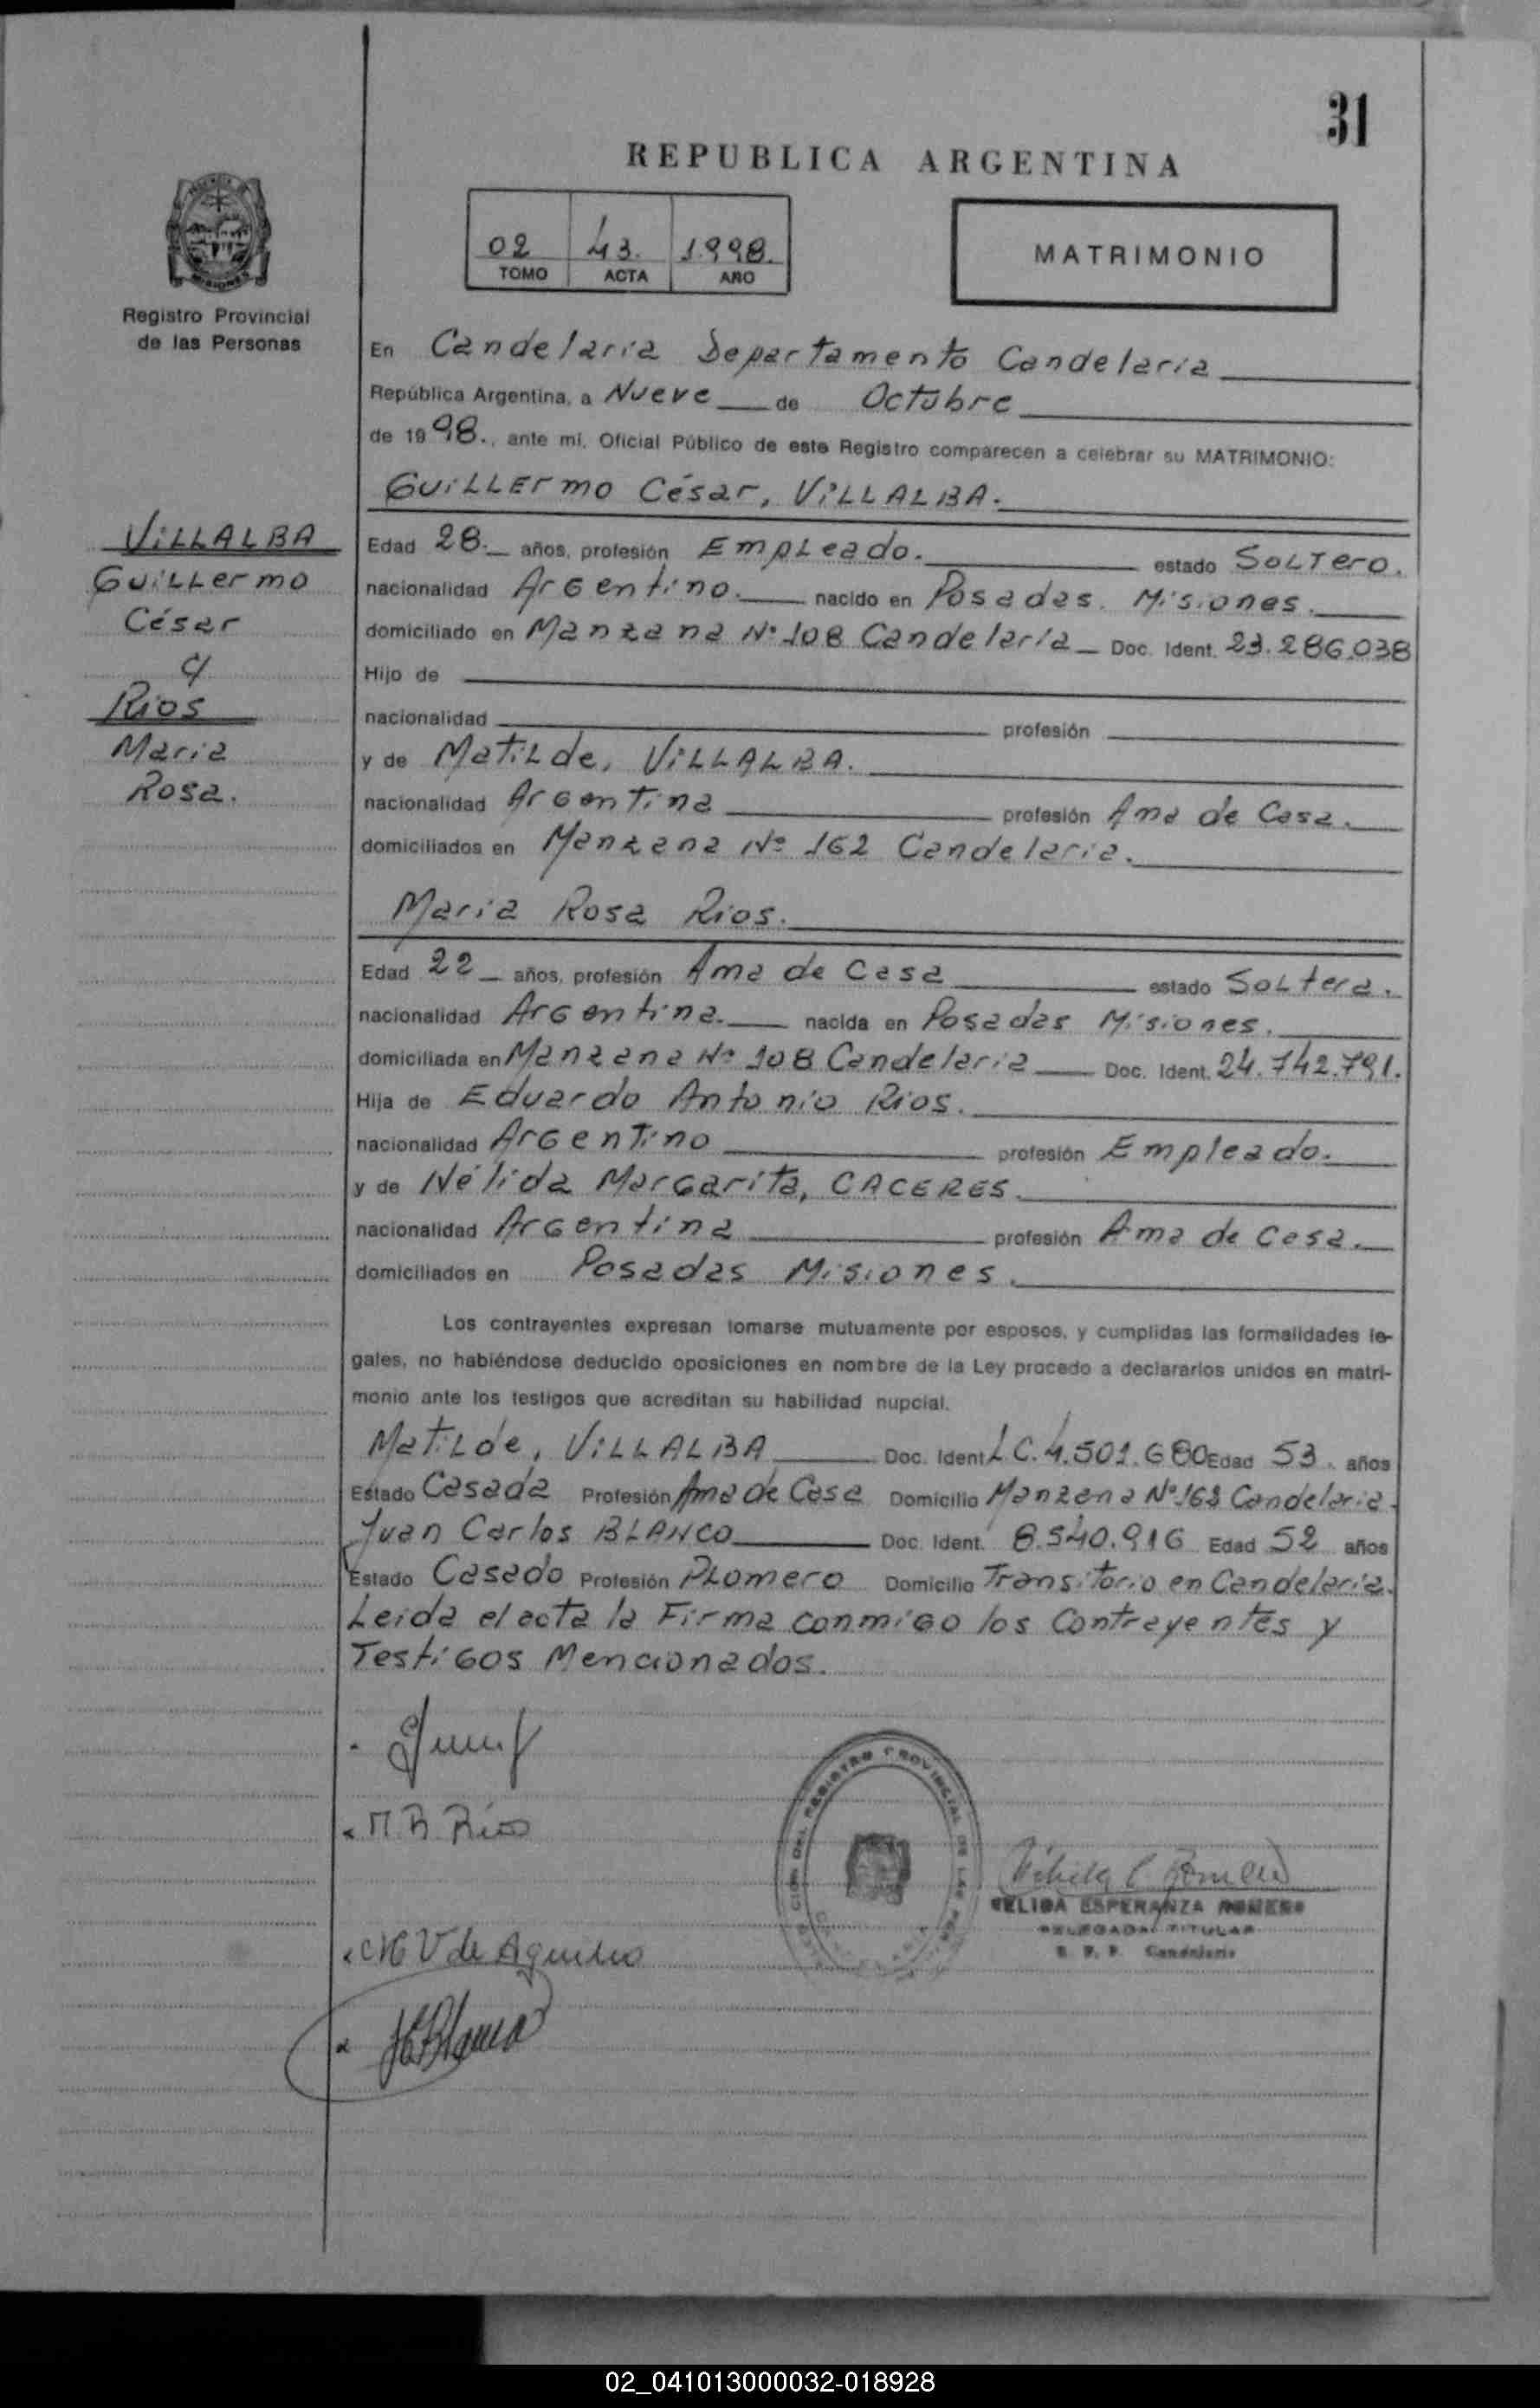 31
REPUBLICA ARGENTINA
02 43. 1.998.
TOMO ACTA AÑO
MATRIMONIO
Registro Provincial
de las Personas
En Candelaria Departamento Candelaria
República Argentina, a Nueve de Octubre
de 1998., ante mí, Oficial Público de este Registro comparecen a celebrar su MATRIMONIO:
Guillermo César, VILLALBA.
VILLALBA
Guillermo
César
c/
Rios
Maria
Rosa.
Edad 28. años, profesión Empleado. estado Soltero.
nacionalidad Argentino. nacido en Posadas. Misiones.
domiciliado en Manzana Nº 108 Candelaria Doc. Ident. 23.286.038
Hijo de
nacionalidad profesión
y de Matilde, VILLALBA.
nacionalidad Argentina profesión Ama de Casa.
domiciliados en Manzana Nº 162 Candelaria.
Maria Rosa Rios.
Edad 22 años, profesión Ama de Casa estado Soltera.
nacionalidad Argentina. nacida en Posadas Misiones.
domiciliada en Manzana Nº 108 Candelaria Doc. Ident. 24.742.791.
Hija de Eduardo Antonio Rios.
nacionalidad Argentino profesión Empleado.
y de Nélida Margarita, CACERES.
nacionalidad Argentina profesión Ama de Casa.
domiciliados en Posadas Misiones.
Los contrayentes expresan tomarse mutuamente por esposos, y cumplidas las formalidades le-
gales, no habiéndose deducido oposiciones en nombre de la Ley procedo a declararlos unidos en matri-
monio ante los testigos que acreditan su habilidad nupcial.
Matilde, VILLALBA Doc. Ident L.C. 4.501.680 Edad 53. años
Estado Casada Profesión Ama de Casa Domicilio Manzana Nº Candelaria.
Juan Carlos BLANCO Doc. Ident. 8.540.916 Edad 52 años
Estado Casado Profesión Plomero Domicilio Transitorio en Candelaria.
Leida el acta la Firma conmigo los Contrayentes y
Testigos Mencionados.
M.R. Rios
V de Aquino
JCBlanco
REGISTRO PROVINCIAL DE LAS
ESPERANZA ROMERO
DELEGADA TITULAR
R. P. P. Candelaria
02_041013000032-018928